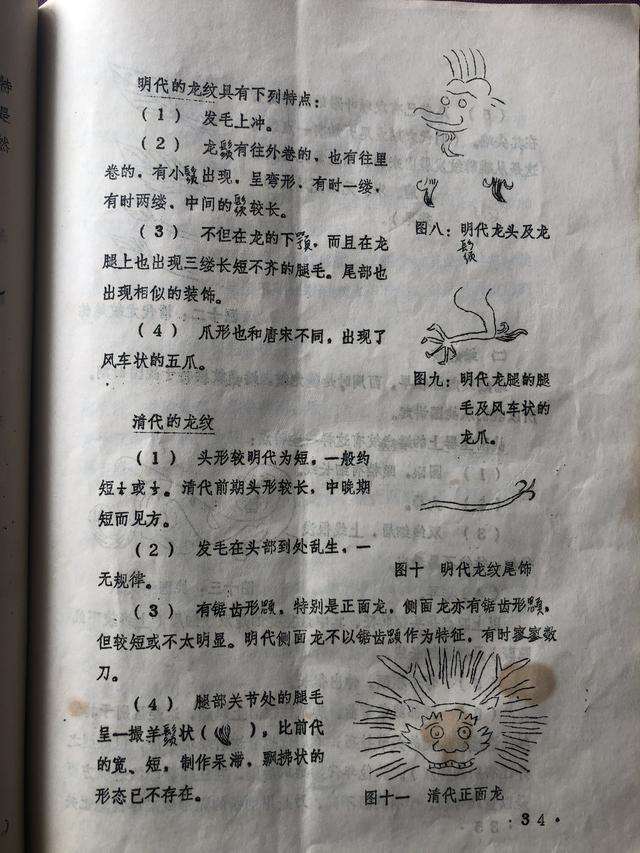 明代的龙纹具有下列特点：
（1） 发毛上冲。
（2） 龙鬃有往外卷的，也有往里
卷的，有小鬃出现，呈弯形，有时一缕，
有时两缕，中间的鬃较长。
（3） 不但在龙的下颚，而且在龙
腿上也出现三缕长短不齐的腿毛。尾部也
出现相似的装饰。
（4） 爪形也和唐宋不同，出现了
风车状的五爪。
图八：明代龙头及龙
鬃
图九：明代龙腿的腿
毛及风车状的
龙爪。
清代的龙纹
（1） 头形较明代为短，一般约
短 或 。清代前期头形较长，中晚期
短而见方。
（2） 发毛在头部到处乱生，一
无规律。
图十 明代龙纹尾饰
（3） 有锯齿形颚，特别是正面龙，侧面龙亦有锯齿形颚，
但较短或不太明显。明代侧面龙不以锯齿颚作为特征，有时寥寥数
刀。
（4） 腿部关节处的腿毛
呈一撮羊鬃状（ ），比前代
的宽、短，制作呆滞，飘拂状的
形态已不存在。
图十一 清代正面龙
·34·
特
是
然